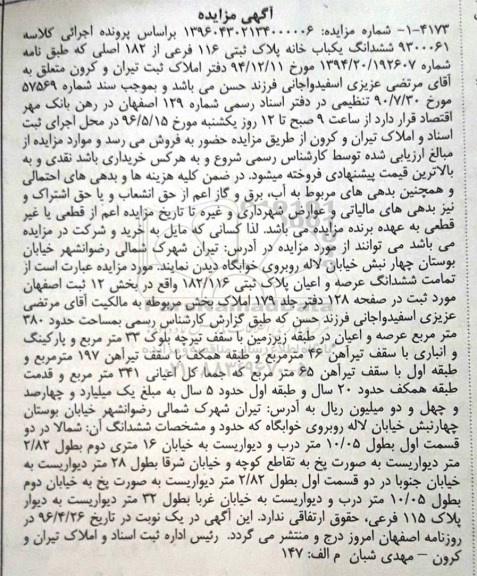 آگهی مزایده
۴۱۷۳-۱- شماره مزایده: ۱۳۹۶۰۴۳۰۲۱۳۴۰۰۰۰۰۶ براساس پرونده اجرائی کلاسه
۹۳۰۰۰۶۱ ششدانگ یکباب خانه پلاک ثبتی ۱۱۶ فرعی از ۱۸۲ اصلی که طبق نامه
شماره ۱۳۹۴/۲۰/۱۹۲۶۰۷ مورخ ۹۴/۱۲/۱۱ دفتر املاک ثبت تیران و کرون متعلق به
آقای مرتضی عزیزی اسفیدواجانی فرزند حسن می باشد و بموجب سند شماره ۵۷۵۶۹
مورخ ۹۰/۷/۳۰ تنظیمی در دفتر اسناد رسمی شماره ۱۳۹ اصفهان در رهن بانک مهر
اقتصاد قرار دارد از ساعت ۹ صبح تا ۱۲ روز یکشنبه مورخ ۹۶/۵/۱۵ در محل اجرای ثبت
اسناد و املاک تیران و کرون از طریق مزایده حضور به فروش می رسد و موارد مزایده از
مبالغ ارزیابی شده توسط کارشناس رسمی شروع و به هرکس خریداری باشد نقدی و به
بالاترین قیمت پیشنهادی فروخته میشود. در ضمن کلیه هزینه ها و بدهی های احتمالی
و همچنین بدهی های مربوط به آب، برق و گاز اعم از حق انشعاب و یا حق اشتراک و
نیز بدهی های مالیاتی و عوارض شهرداری و غیره تا تاریخ مزایده اعم از قطعی یا غیر
قطعی به عهده برنده مزایده می باشد. لذا کسانی که مایل به خرید و شرکت در مزایده
می باشد می توانند از مورد مزایده در آدرس: تیران شهرک شمالی رضوانشهر خیابان
بوستان چهار نبش خیابان لاله روبروی خوابگاه دیدن نمایند. مورد مزایده عبارت است از
تمامت ششدانگ عرصه و اعیان پلاک ثبتی ۱۸۲/۱۱۶ واقع در بخش ۱۲ ثبت اصفهان
مورد ثبت در صفحه ۱۲۸ دفتر جلد ۱۷۹ املاک بخش مربوطه به مالکیت آقای مرتضی
عزیزی اسفیدواجانی فرزند حسن که طبق گزارش کارشناس رسمی بمساحت حدود ۳۸۰
متر مربع عرصه و اعیان در طبقه زیرزمین با سقف تیرچه بلوک ۳۳ متر مربع و پارکینگ
و انباری با سقف تیرآهن ۴۶ مترمربع و طبقه همکف با سقف تیرآهن ۱۹۷ مترمربع و
طبقه اول با سقف تیرآهن ۶۵ متر مربع که جمعا کل اعیانی ۳۴۱ متر مربع و قدمت
طبقه همکف حدود ۲۰ سال و طبقه اول حدود ۵ سال به مبلغ یک میلیارد و چهارصد
و چهل و دو میلیون ریال به آدرس: تیران شهرک شمالی رضوانشهر خیابان بوستان
چهارنبش خیابان لاله روبروی خوابگاه که حدود و مشخصات ششدانگ آن: شمالا در دو
قسمت اول بطول ۱۰/۰۵ متر درب و دیواریست به خیابان ۱۶ متری دوم بطول ۲/۸۲
متر دیواریست به صورت پخ به تقاطع کوچه و خیابان شرقا بطول ۲۸ متر دیواریست به
خیابان جنوبا در دو قسمت اول بطول ۲/۸۲ متر دیواریست به صورت پخ به خیابان دوم
بطول ۱۰/۰۵ متر درب و دیواریست به خیابان غربا بطول ۳۲ متر دیواریست به دیوار
پلاک ۱۱۵ فرعی، حقوق ارتفاقی ندارد. این آگهی در یک نوبت در تاریخ ۹۶/۴/۲۶ در
روزنامه اصفهان امروز درج و منتشر می گردد. رئیس اداره ثبت اسناد و املاک تیران و
کرون – مهدی شبان م الف: ۱۴۷